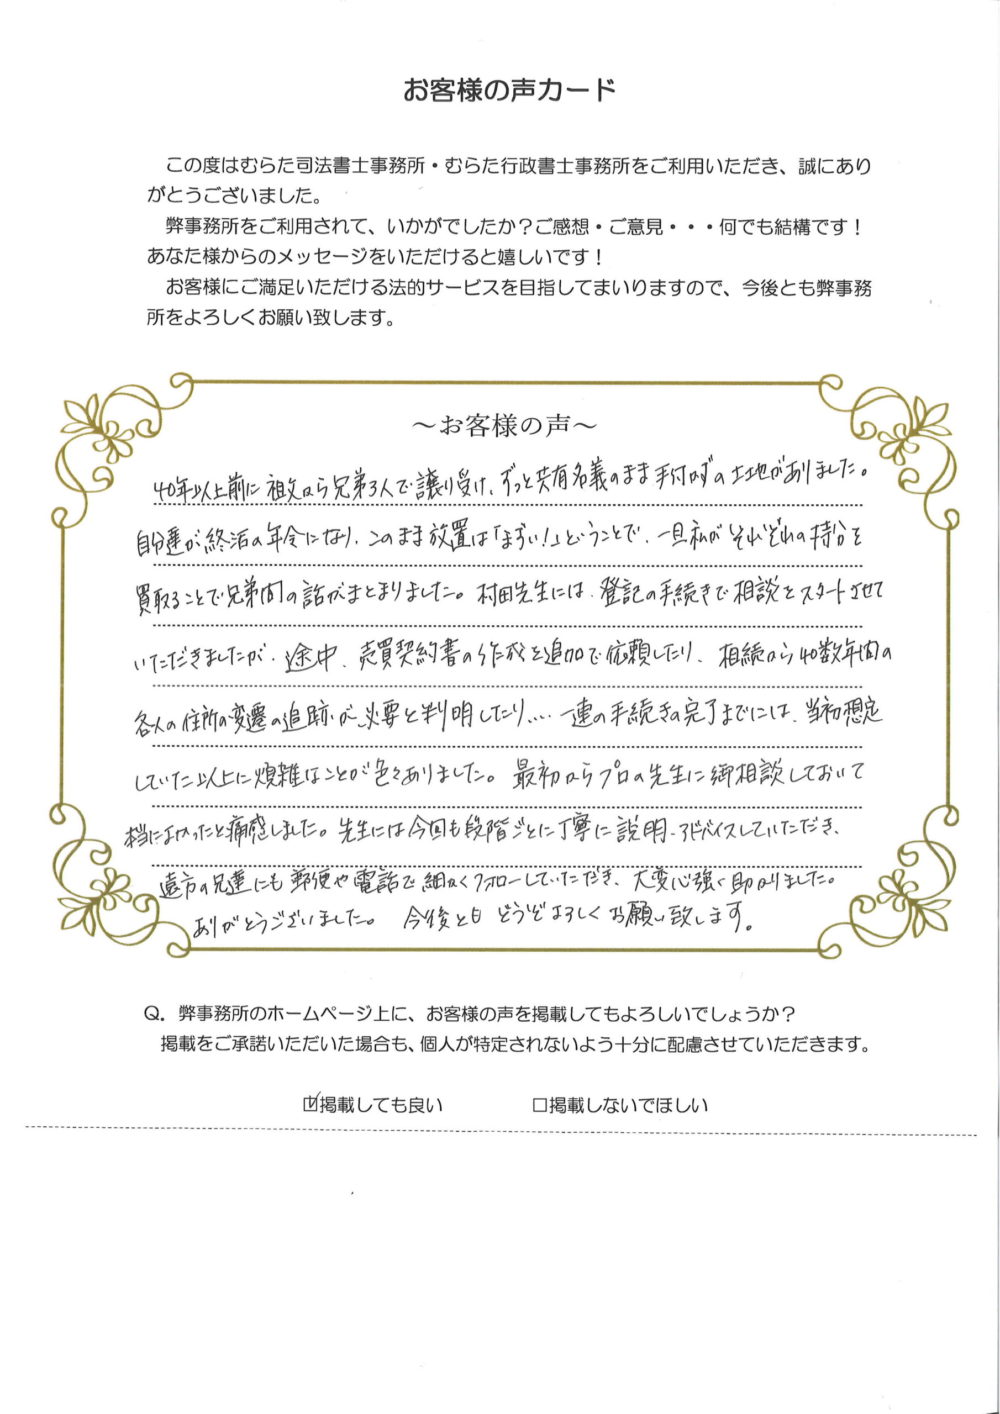 お客様の声カード
この度はむらた司法書士事務所・むらた行政書士事務所をご利用いただき、誠にあり
がとうございました。
弊事務所をご利用されて、いかがでしたか？ご感想・ご意見・・・何でも結構です！
あなた様からのメッセージをいただけると嬉しいです！
お客様にご満足いただける法的サービスを目指してまいりますので、今後とも弊事務
所をよろしくお願い致します。
～お客様の声～
40年以上前に祖父から兄弟3人で譲り受け、ずっと共有名義のまま手付かずの土地がありました。
自分達が終活の年令になり、このまま放置は「まずい！」ということで、一旦私がそれぞれの持分を
買取ることで兄弟間の話がまとまりました。村田先生には、登記の手続きで相談をスタートさせて
いただきましたが、途中、売買契約書の作成を追加で依頼したり、相続から40数年間の
各人の住所の変遷の追跡が必要と判明したり…、一連の手続きの完了までには、当初想定
していた以上に煩雑なことが色々ありました。最初からプロの先生に御相談しておいて
本当によかったと痛感しました。先生には今回も段階ごとに丁寧に説明・アドバイスしていただき、
遠方の兄達にも郵便や電話で細かくフォローしていただき、大変心強く助かりました。
ありがとうございました。今後ともどうぞよろしくお願い致します。
Q. 弊事務所のホームページ上に、お客様の声を掲載してもよろしいでしょうか？
掲載をご承諾いただいた場合も、個人が特定されないよう十分に配慮させていただきます。
☑掲載しても良い □掲載しないでほしい